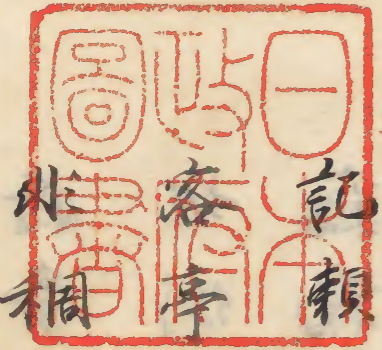 日本
政府
圖書
記賴
客亭
稠